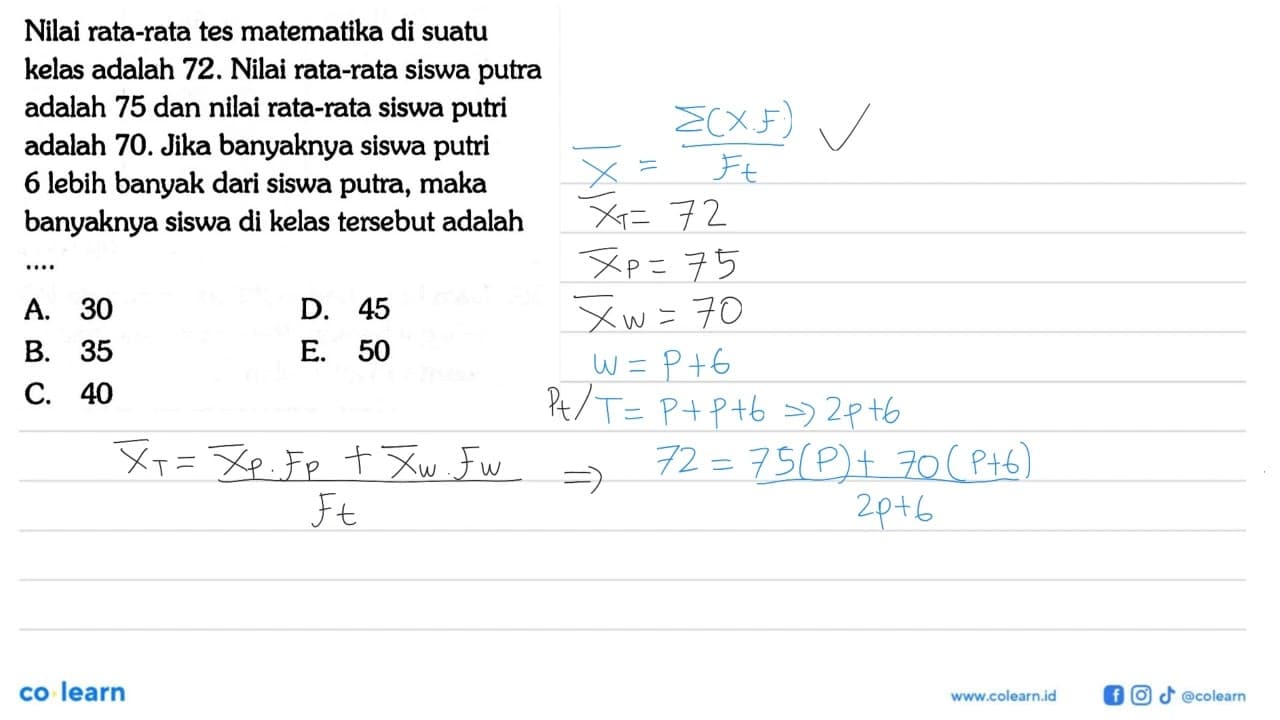 Nilai rata-rata tes matematika di suatu
kelas adalah 72. Nilai rata-rata siswa putra
adalah 75 dan nilai rata-rata siswa putri
adalah 70. Jika banyaknya siswa putri
6 lebih banyak dari siswa putra, maka
banyaknya siswa di kelas tersebut adalah
....
A. 30
B. 35
C. 40
D. 45
E. 50
X̅ = Σ(X.F) / Ft ✓
X̅T = 72
X̅P = 75
X̅W = 70
W = P+6
Pt/T = P+P+6 ⇒ 2P+6
X̅T = X̅P.FP + X̅W.FW / Ft ⇒ 72 = 75(P) + 70(P+6) / 2P+6
co learn
www.colearn.id
@colearn